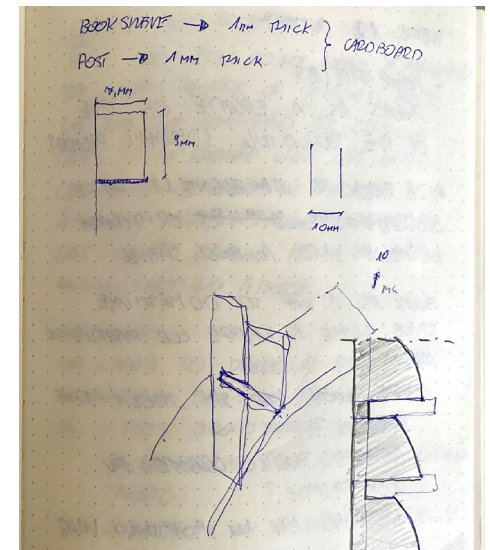 BOOKSHELVE → 1 MM THICK
POST → 1 MM THICK
CARDBOARD
7,MM
9MM
10MM
10